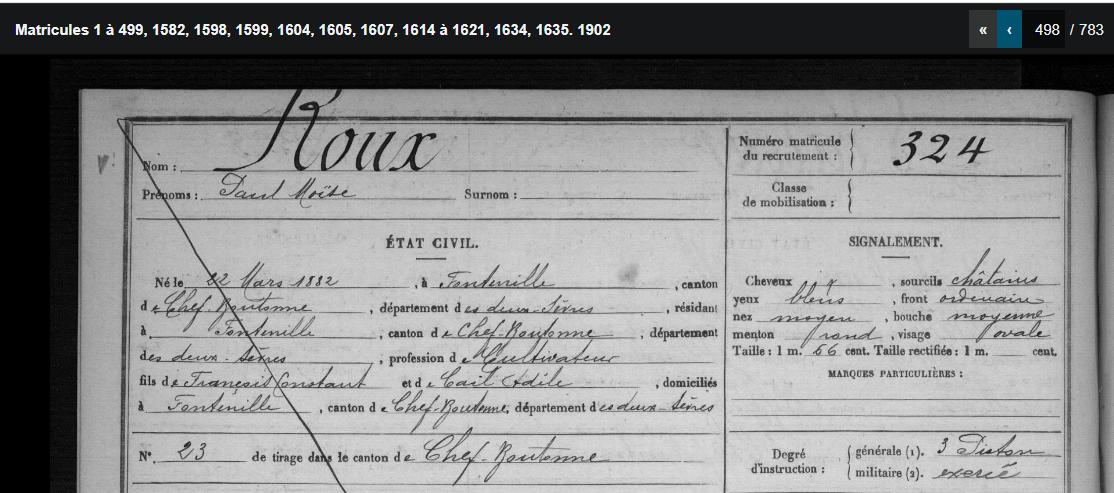 Matricules 1 à 499, 1582, 1598, 1599, 1604, 1605, 1607, 1614 à 1621, 1634, 1635. 1902
« ‹ 498 / 783
Nom : Roux
Prénoms : Paul Moïse Surnom :
Numéro matricule du recrutement : 324
Classe de mobilisation :
ÉTAT CIVIL.
Né le 22 Mars 1882, à Fontenille, canton
de Chef-Boutonne, département des deux-Sèvres, résidant
à Fontenille, canton de Chef-Boutonne, département
des deux-Sèvres, profession de Cultivateur
fils de François Constant et de Cail, domiciliés
à Fontenille, canton de Chef-Boutonne, département des deux-Sèvres
N° 23 de tirage dans le canton de Chef-Boutonne
SIGNALEMENT.
Cheveux, sourcils châtains
yeux bleus, front ordinaire
nez moyen, bouche moyenne
menton rond, visage ovale
Taille : 1 m. 56 cent. Taille rectifiée : 1 m. cent.
MARQUES PARTICULIÈRES :
Degré d'instruction : générale (1). 3
militaire (2). exercé